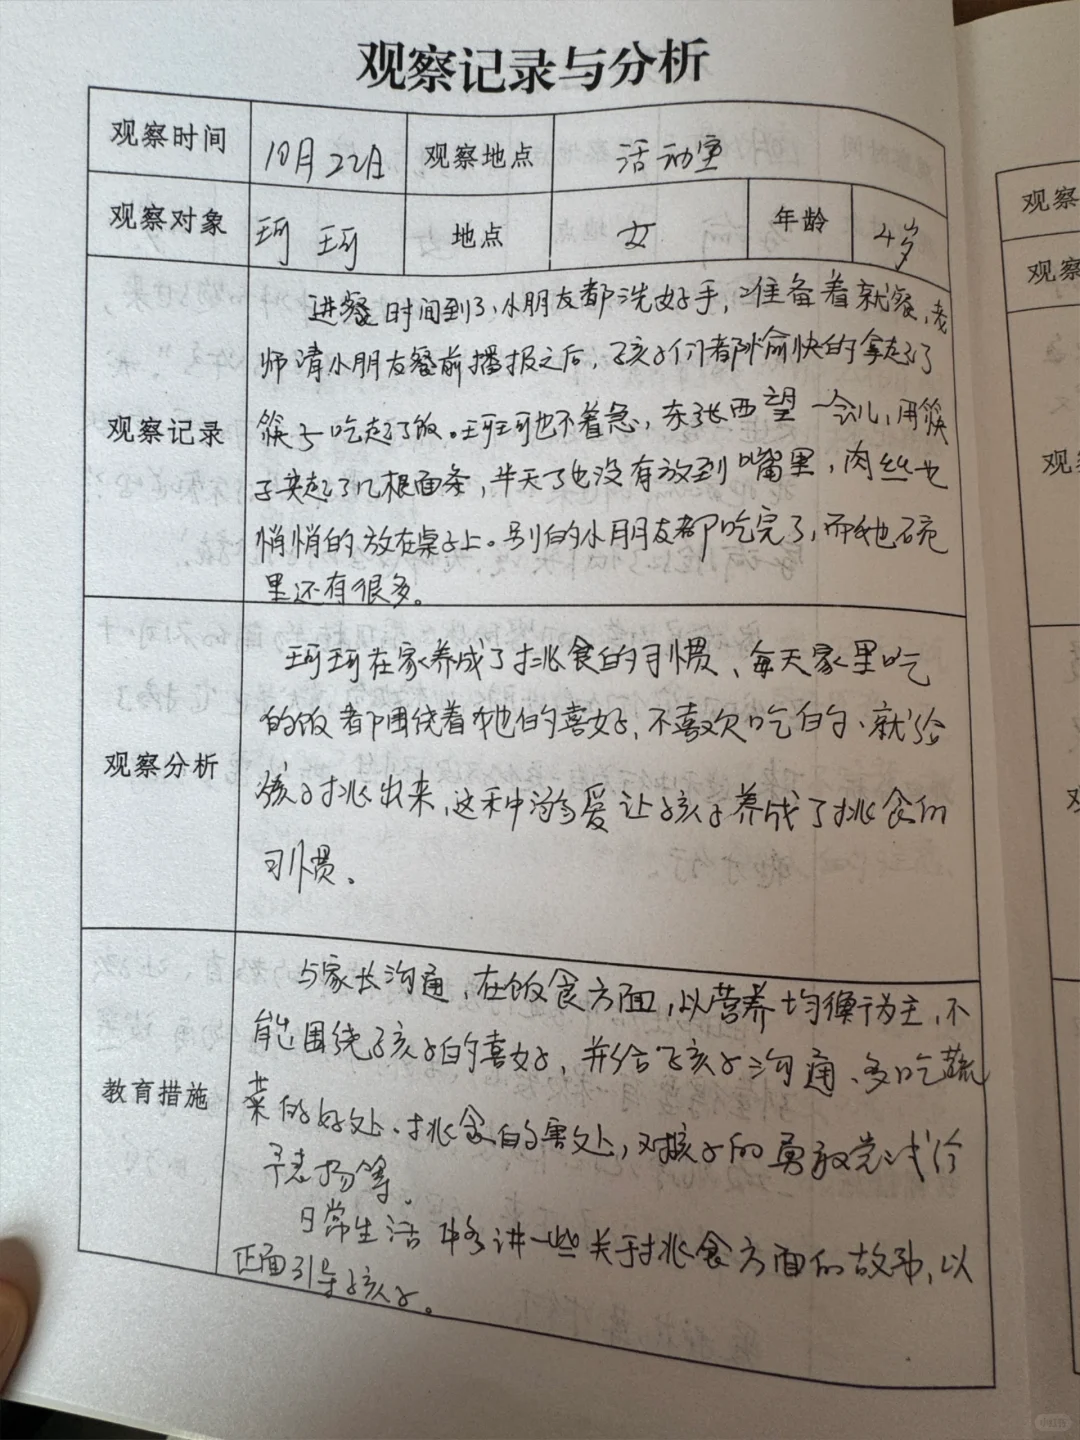 观察记录与分析
观察时间 10月22日 观察地点 活动室
观察对象 珂珂 地点 女 年龄 4岁
观察记录
进餐时间到了,小朋友都洗好手,准备着就餐,老
师请小朋友餐前播报之后,孩子们都愉快的拿起了
筷子吃起了饭。珂珂也不着急,东张西望一会儿,用筷
子夹起了几根面条,半天了也没有放到嘴里,肉丝也
悄悄的放在桌子上。别的小朋友都吃完了,而她碗
里还有很多。
观察分析
珂珂在家养成了挑食的习惯、每天家里吃
的饭都围绕着她的喜好,不喜欢吃的、就给
孩子挑出来,这种溺爱让孩子养成了挑食的
习惯。
教育措施
与家长沟通,在饭食方面,以营养均衡为主,不
能围绕孩子的喜好,并给孩子沟通、多吃蔬
菜的好处、挑食的害处,对孩子的勇敢尝试给
予表扬等。
日常生活中多讲一些关于挑食方面的故事,以
正面引导孩子。
观察
观察
观
小红书